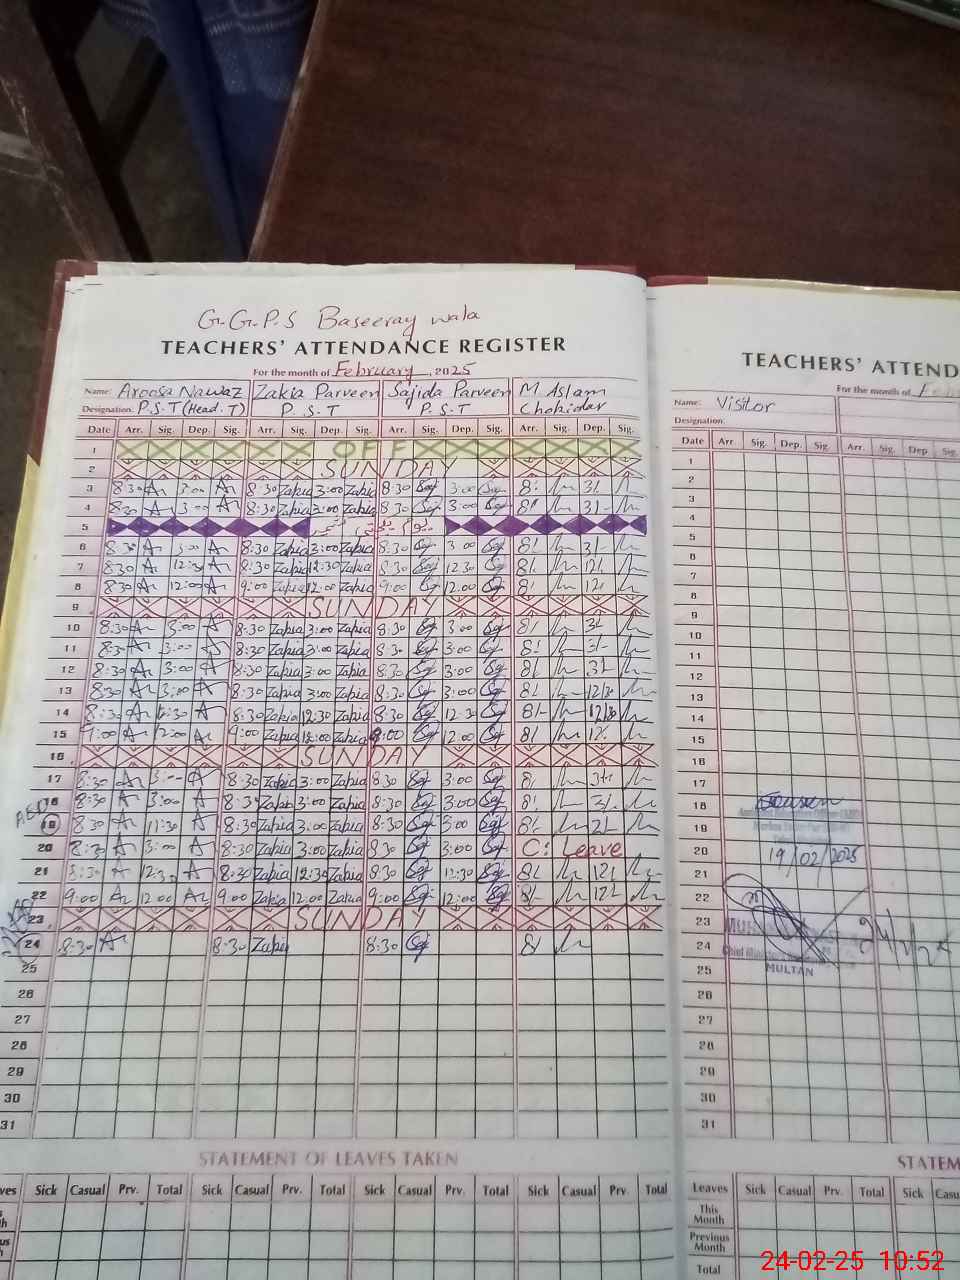 G.G.P.S Baseeray wala
TEACHERS' ATTENDANCE REGISTER
For the month of February, 2025
Name: Aroosa Nawaz Zakia Parveen Sajida Parveen M. Aslam
Designation: P.S.T (Head.T) P.S.T P.S.T Chokidar
Date Arr. Sig. Dep. Sig. Arr. Sig. Dep. Sig. Arr. Sig. Dep. Sig. Arr. Sig. Dep. Sig.
1 OFF
2 SUNDAY
3 8:30 3:00 8:30 Zakia 3:00 Zakia 8:30 3:00 8/ 3/
4 8:30 3:00 8:30 Zakia 3:00 Zakia 8:30 3:00 8/ 3/
5
6 8:30 3:00 8:30 Zakia 3:00 Zakia 8:30 3:00 8/ 3/
7 8:30 12:30 8:30 Zakia 12:30 Zakia 8:30 12:30 8/ 12/
8 8:30 12:00 9:00 Zakia 12:00 Zakia 9:00 12:00 8/ 12/
9 SUNDAY
10 8:30 3:00 8:30 Zakia 3:00 Zakia 8:30 3:00 8/ 3/
11 8:30 3:00 8:30 Zakia 3:00 Zakia 8:30 3:00 8/ 3/
12 8:30 3:00 8:30 Zakia 3:00 Zakia 8:30 3:00 8/ 3/
13 8:30 3:00 8:30 Zakia 3:00 Zakia 8:30 3:00 8/
14 8:30 12:30 8:30 Zakia 12:30 Zakia 8:30 12:30 8/
15 9:00 12:00 9:00 Zakia 12:00 Zakia 9:00 12:00 8/ 12/
16 SUNDAY
17 8:30 3:00 8:30 Zakia 3:00 Zakia 8:30 3:00 8/ 3/
18 8:30 3:00 8:30 Zakia 3:00 Zakia 8:30 3:00 8/ 3/
A.E.O
19 8:30 11:30 8:30 Zakia 3:00 Zakia 8:30 3:00 8/ 2/
20 8:30 3:00 8:30 Zakia 3:00 Zakia 8:30 3:00 C: Leave
21 8:30 12:30 8:30 Zakia 12:30 Zakia 8:30 12:30 8/ 12/
22 9:00 12:00 9:00 Zakia 12:00 Zakia 9:00 12:00 8/ 12/
23 SUNDAY
24 8:30 8:30 Zakia 8:30 8/
25
26
27
28
29
30
31
STATEMENT OF LEAVES TAKEN
ves Sick Casual Prv. Total Sick Casual Prv. Total Sick Casual Prv. Total Sick Casual Prv. Total
TEACHERS' ATTEND
For the month of
Name: Visitor
Designation:
Date Arr. Sig. Dep. Sig. Arr. Sig. Dep Sig.
1
2
3
4
5
6
7
8
9
10
11
12
13
14
15
16
17
18
19
20 19/02/2025
21
22
23
24
25 MULTAN
26
27
28
29
30
31
STATEM
Leaves Sick Casual Prv. Total Sick Casu
This Month
Previous Month
Total
24-02-25 10:52